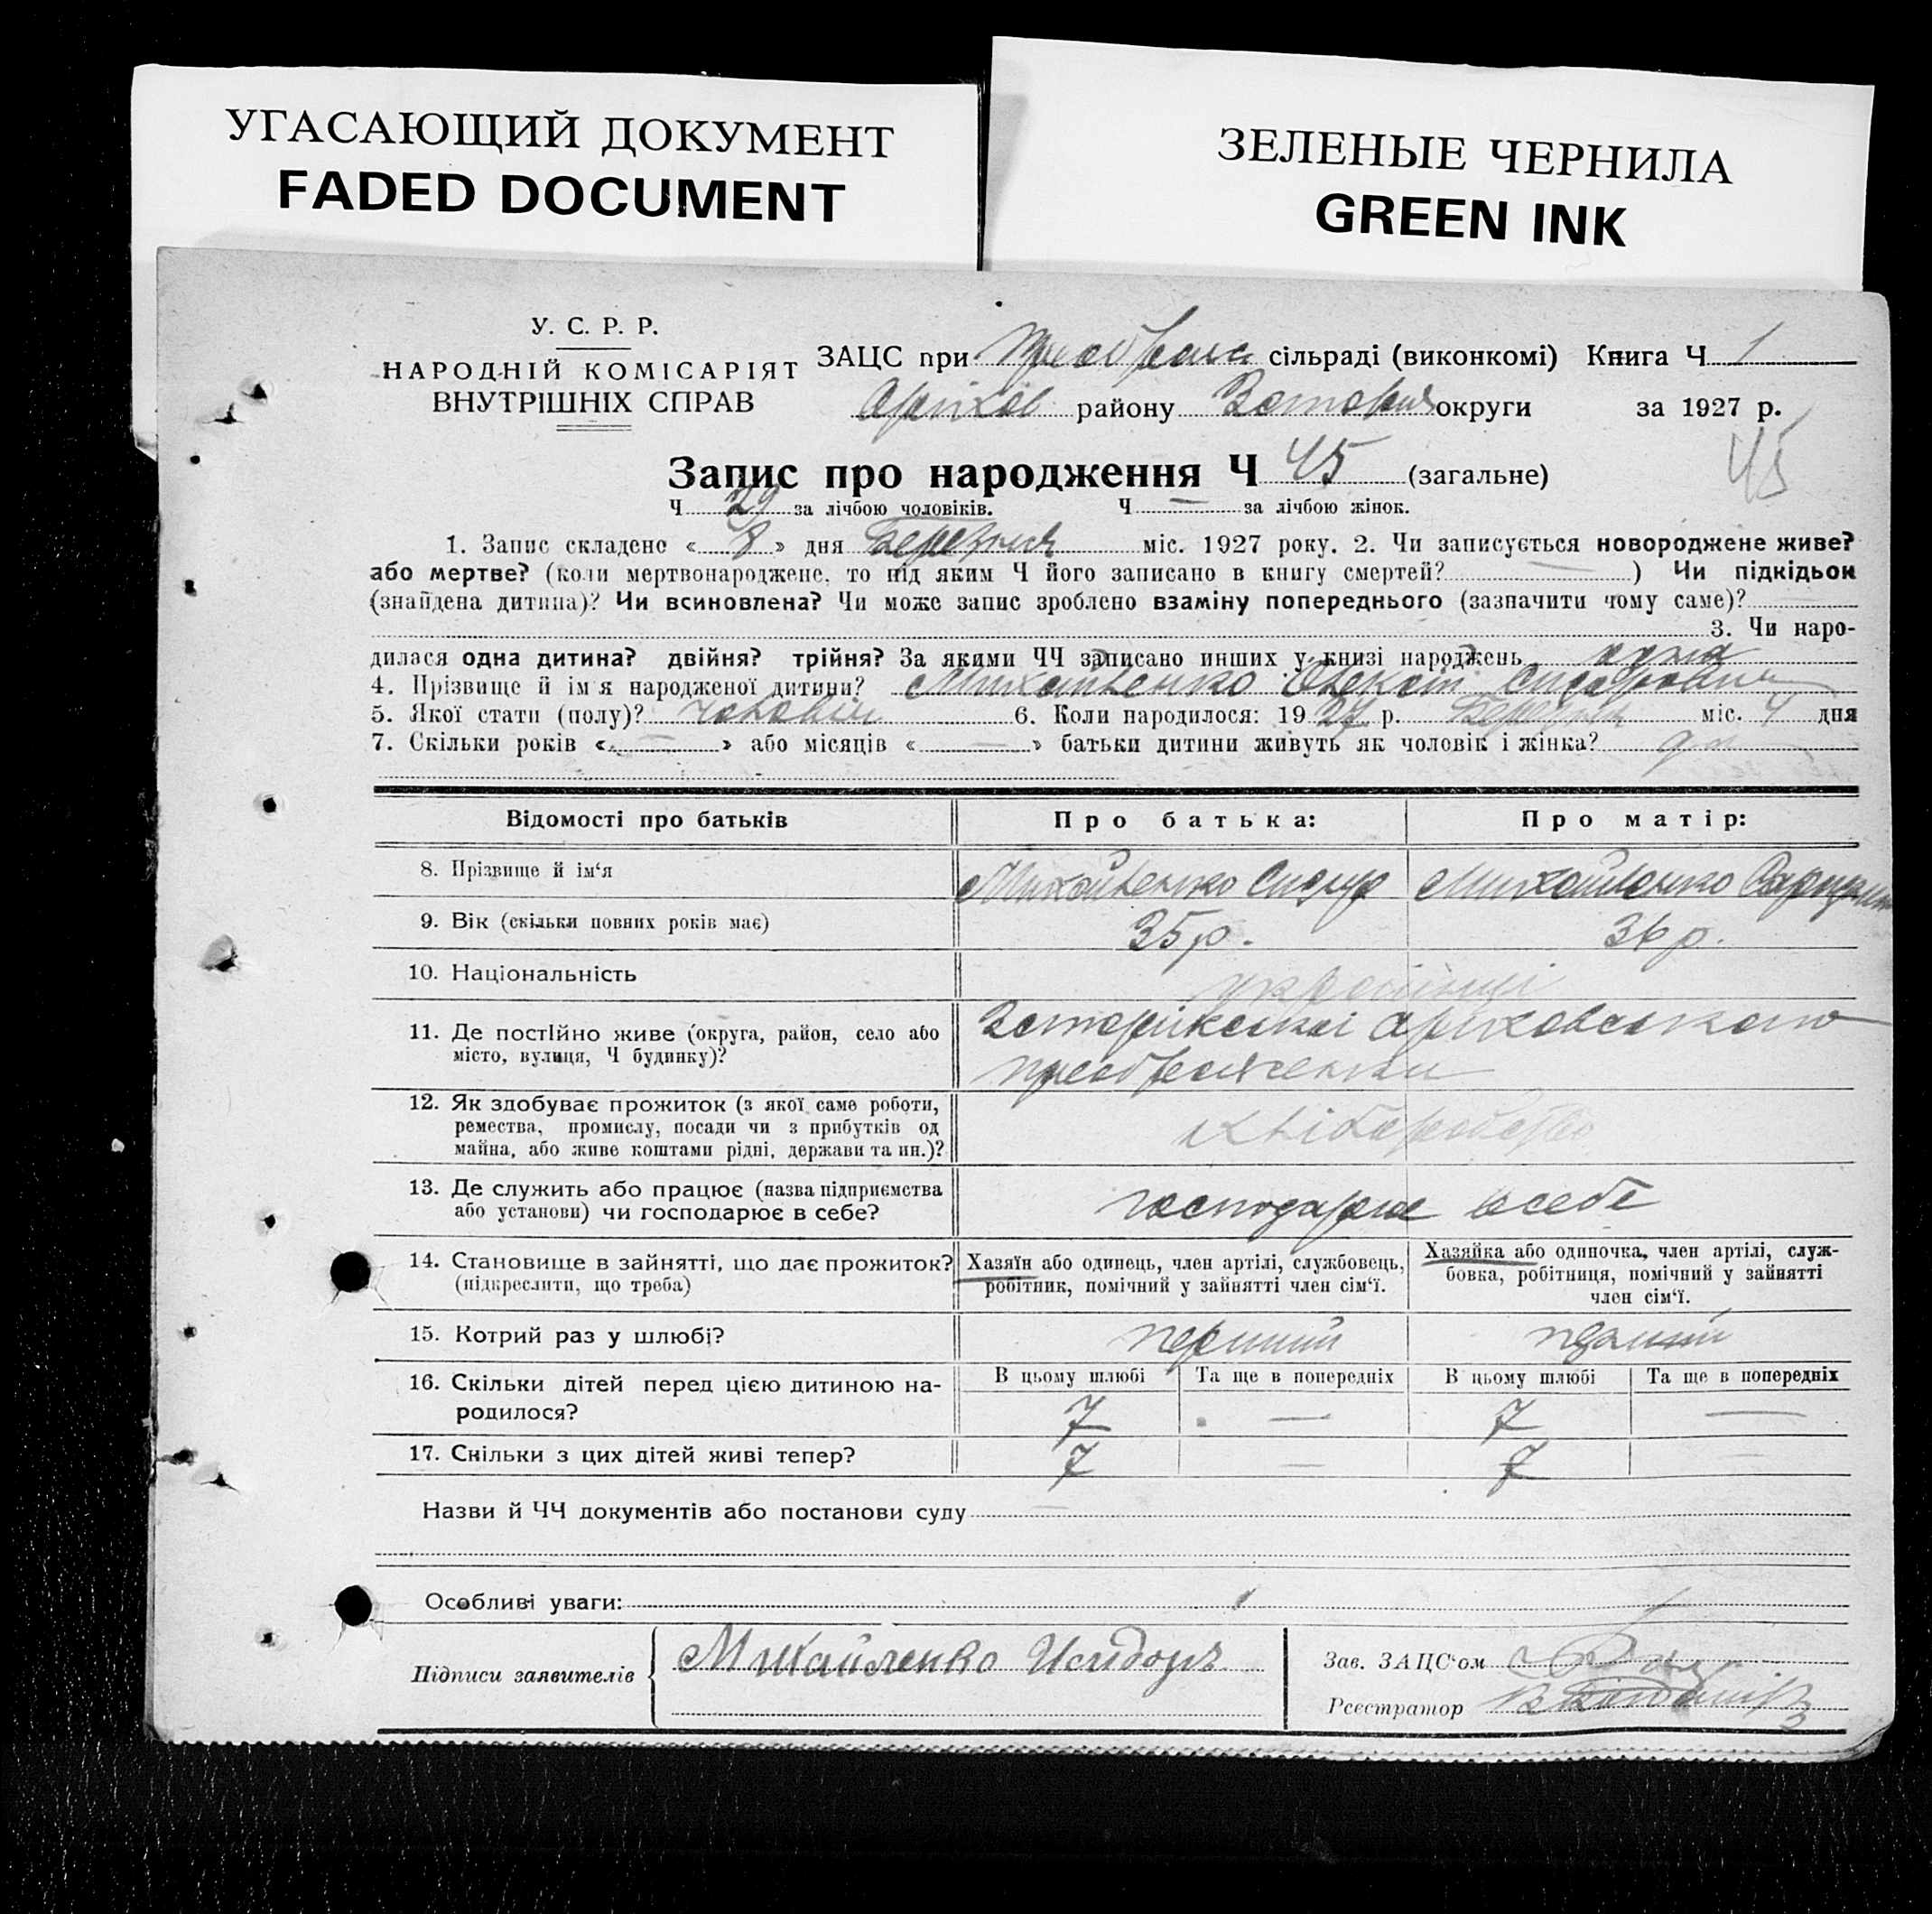 УГАСАЮЩИЙ ДОКУМЕНТ
FADED DOCUMENT
ЗЕЛЕНЫЕ ЧЕРНИЛА
GREEN INK
У. С. Р. Р.
НАРОДНІЙ КОМІСАРІЯТ
ВНУТРІШНІХ СПРАВ
ЗАЦС при Преображ сільраді (виконкомі) Книга Ч 1
Оріхов району Запоріж округи за 1927 р.
45
Запис про народження Ч 45 (загальне)
Ч 29 за лічбою чоловіків. Ч — за лічбою жінок.
1. Запис складено « 8 » дня Березня міс. 1927 року. 2. Чи записується новороджене живе?
або мертве? (коли мертвонароджене, то під яким Ч його записано в книгу смертей? — ) Чи підкідьок
(знайдена дитина)? Чи всиновлена? Чи може запис зроблено взаміну попереднього (зазначити чому саме)?
3. Чи наро-
дилася одна дитина? двійня? трійня? За якими ЧЧ записано инших у книзі народжень одна
4. Прізвище й ім'я народженої дитини? Михайленко
5. Якої стати (полу)? чоловіч 6. Коли народилося: 1927 р. Березня міс. 4 дня
7. Скільки років « — » або місяців « — » батьки дитини живуть як чоловік і жінка?
Відомості про батьків
Про батька:
Про матір:
8. Прізвище й ім'я
Михайленко Сидор
Михайленко
9. Вік (скільки повних років має)
35 р.
36 р.
10. Національність
українці
11. Де постійно живе (округа, район, село або
місто, вулиця, Ч будинку)?
Запоріжської Оріховського
Преображенки
12. Як здобуває прожиток (з якої саме роботи,
ремества, промислу, посади чи з прибутків од
майна, або живе коштами рідні, держави та ин.)?
хліборобство
13. Де служить або працює (назва підприємства
або установи) чи господарює в себе?
господарює в себе
14. Становище в зайнятті, що дає прожиток?
(підкреслити, що треба)
Хазяїн або одинець, член артілі, службовець,
робітник, помічний у зайнятті член сім'ї.
Хазяйка або одиночка, член артілі, служ-
бовка, робітниця, помічний у зайнятті
член сім'ї.
15. Котрий раз у шлюбі?
перший
перший
16. Скільки дітей перед цією дитиною на-
родилося?
В цьому шлюбі
Та ще в попередніх
В цьому шлюбі
Та ще в попередніх
7 — 7 —
17. Скільки з цих дітей живі тепер?
7 — 7 —
Назви й ЧЧ документів або постанови суду —
Особливі уваги:
Підписи заявителів
Михайленко Исидоръ
Зав. ЗАЦС'ом
Реєстратор